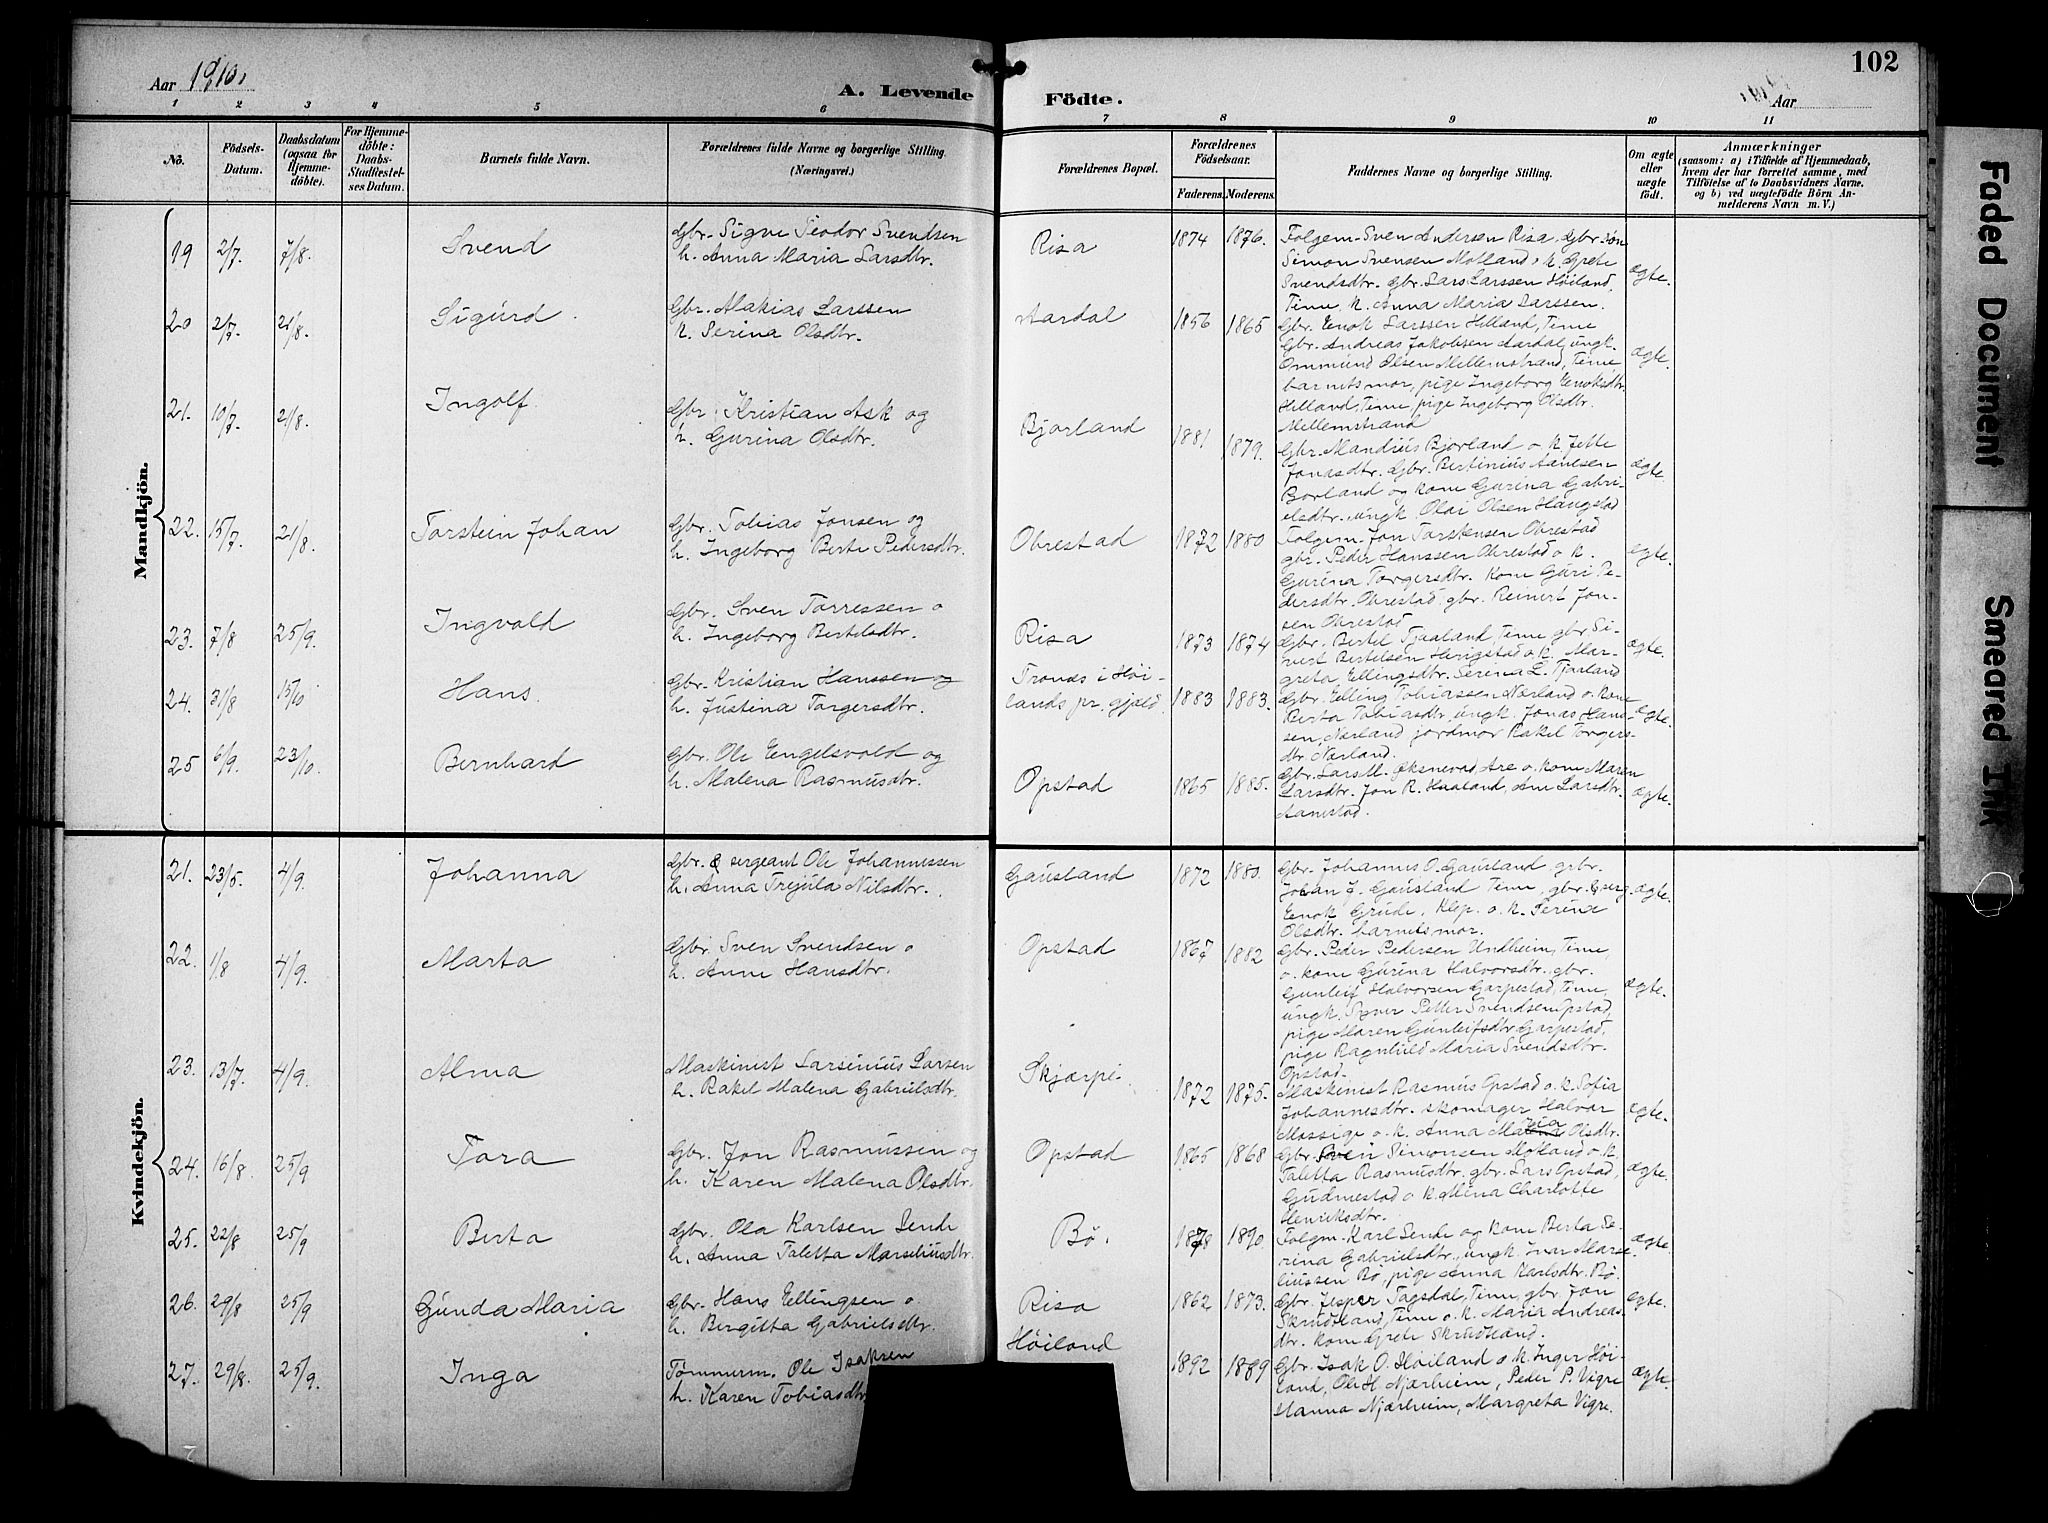 Aar 1910.
A. Levende Födte.
Aar
102
1 2 3 4 5 6 7 8 9 10 11
No.
Födsels-Datum.
Daabsdatum (ogsaa for Hjemmedöbte).
For Hjemmedöbte: Daabs-Stadfæstelses Datum.
Barnets fulde Navn.
Forældrenes fulde Navne og borgerlige Stilling.
(Næringsvei.)
Forældrenes Bopæl.
Forældrenes Födselsaar.
Faderens. Moderens.
Faddernes Navne og borgerlige Stilling.
Om ægte eller uægte födt.
Anmærkninger
(saasom: a) i Tilfælde af Hjemmedaab,
hvem der har forrettet samme, med
Tilföielse af to Daabsvidners Navne,
og b) ved uægtefödte Börn Anmelderens Navn m. V.)
Mandkjön.
19 2/7. 7/8. Svend
Gbr. Sigve Teodor Svendsen
h. Anna Maria Larsdtr.
Risa 1874 1876.
Folgem. Sven Andersen Risa, Gbr. søn
Simon Svensen Motland, k. Grete
Svendsdtr. gbr. Lars Larssen Høiland,
Time, k. Anna Maria Larssen.
ægte.
20 2/7. 21/8. Sigurd.
Gbr. Malakias Larssen
h. Serina Olsdtr.
Aardal 1856 1865
Gbr. Enok Larssen Helland, Time
Gbr. Andreas Jakobsen Aardal, ungk.
Ommund Olsen Mellemstrand, Time
barnets mor, pige Ingeborg Enoksdtr.
Helland, Time, pige Ingeborg Olsdtr.
Mellemstrand
ægte.
21. 10/7. 21/8. Ingolf.
Gbr. Kristian Ask og
h. Gurina Olsdtr.
Bjorland 1881 1879.
Gbr. Mandius Bjorland o. k. Jette
Jonasdtr. Gbr. Bertinius Aanesen
Borland og kone Gurina Gabrielsdtr.
ungk Olai Olsen Haugstad
ægte
22. 15/7. 21/8. Torstein Johan
Gbr. Tobias Jonsen og
h. Ingeborg Berte Pedersdtr.
Obrestad 1872 1880
Folgem. Jon Torstensen Obrestad
gbr. Peder Hanssen Obrestad o. k.
Gurina Torgersdtr. Kone Guri Pedersdtr.
Obrestad, gbr. Reinert Jonsen
Obrestad
ægte.
23. 7/8 25/9. Ingvald
Gbr. Sven Torressen o
h. Ingeborg Bertelsdtr.
Risa 1873 1874
Gbr. Bertel Tjaaland, Time gbr. Sivert
Bertelsen Herigstad o. k. Margreta
Ellingsdtr. Serina L. Tjorland
ægte.
24. 31/8 15/10 Hans.
Gbr. Kristian Hanssen og
h. Justina Torgersdtr.
Tronds i Høilands pr. gjeld 1883 1883.
Gbr. Elling Tobiassen Nærland o. kone
Berta Tobiasdtr, ungk. Jonas Hanssen,
Nærland jordmor Rakel Torgersdtr
Nærland.
ægte.
25 6/9. 23/10. Bernhard
Gbr. Ole Engelsvold og
h. Malena Rasmusdtr.
Opstad 1865 1885.
Gbr. Lars M. Øksnevad, Are o. kone Maren
Larsdtr. Jon R. Hualand, Ane Larsdtr.
Aanestad.
ægte.
Kvindekjön.
21. 23/5. 4/9. Johanna
Gbr. & sergeant Ole Johannessen
h. Anna Trejula Nilsdtr.
Gausland 1872 1880.
Gbr. Johannes O. Gausland, gbr.
Johan J. Gausland Time, gbr. & serg.
Enok Grude, Klep. o. k. Serine
Olsdtr. barnets mor.
ægte.
22. 1/8 4/9. Marta
Gbr. Sven Svendsen o
h. Anne Hansdtr.
Opstad 1867 1882
Gbr. Peder Pedersen Undheim, Time
o. kone Gurina Halvorsdtr. gbr.
Gunleif Halvorsen Garpestad, Time,
ungk. Syver Petter Svendsen Opstad,
pige Maren Gunleifsdtr Garpestad,
pige Ragnhild Maria Svendsdtr.
Opstad.
ægte.
23. 13/7. 4/9. Alma
Maskinist Larsinius Larsen
h. Rakel Malena Gabrielsdtr.
Skjærpe. 1872 1875.
Maskinist Rasmus Opstad o. k. Sofia
Johannesdtr. skomager Halvar
Mossige o. k. Anna Maria Olsdtr.
ægte.
24. 16/8. 25/9 Tora
Gbr. Jon Rasmussen og
h. Karen Malena Olsdtr.
Opstad 1865 1868
Gbr. Sven Simonsen Motland o. k
Taletta Rasmusdtr, gbr. Lars Opstad,
Gudmestad o k. Mina Charlotte
Henriksdtr.
ægte.
25. 22/8 25/9 Berta
Gbr. Ola Karlsen Sende
h. Anna Taletta Marseliusdtr.
Bø. 1878 1890
Folgm. Karl Sende og kone Berta Serina
Gabrielsdtr, ungk. Ivar Marseliussen
Bø, pige Anna Karlsdtr. Bø.
ægte.
26. 29/8 25/9 Gunda Maria
Gbr. Hans Ellingsen o.
h. Bergitta Gabrielsdtr.
Risa 1862 1873.
Gbr. Jesper Tagsdal, Time, gbr. Jon
Skrudland, Time o. k. Maria Andreasdtr.
kone Grete Skrudland.
ægte.
27. 29/8. 25/9. Inga
Tømmerm. Ole Isaksen
h. Karen Tobiasdtr
Høiland 1892 1889
Gbr. Isak O. Høiland o. k. Inger Høiland,
Ole H. Njærheim, Peder P. Vigre
Hanna Njærheim, Margreta Vigre.
ægte.
Faded Document
Smeared Ink